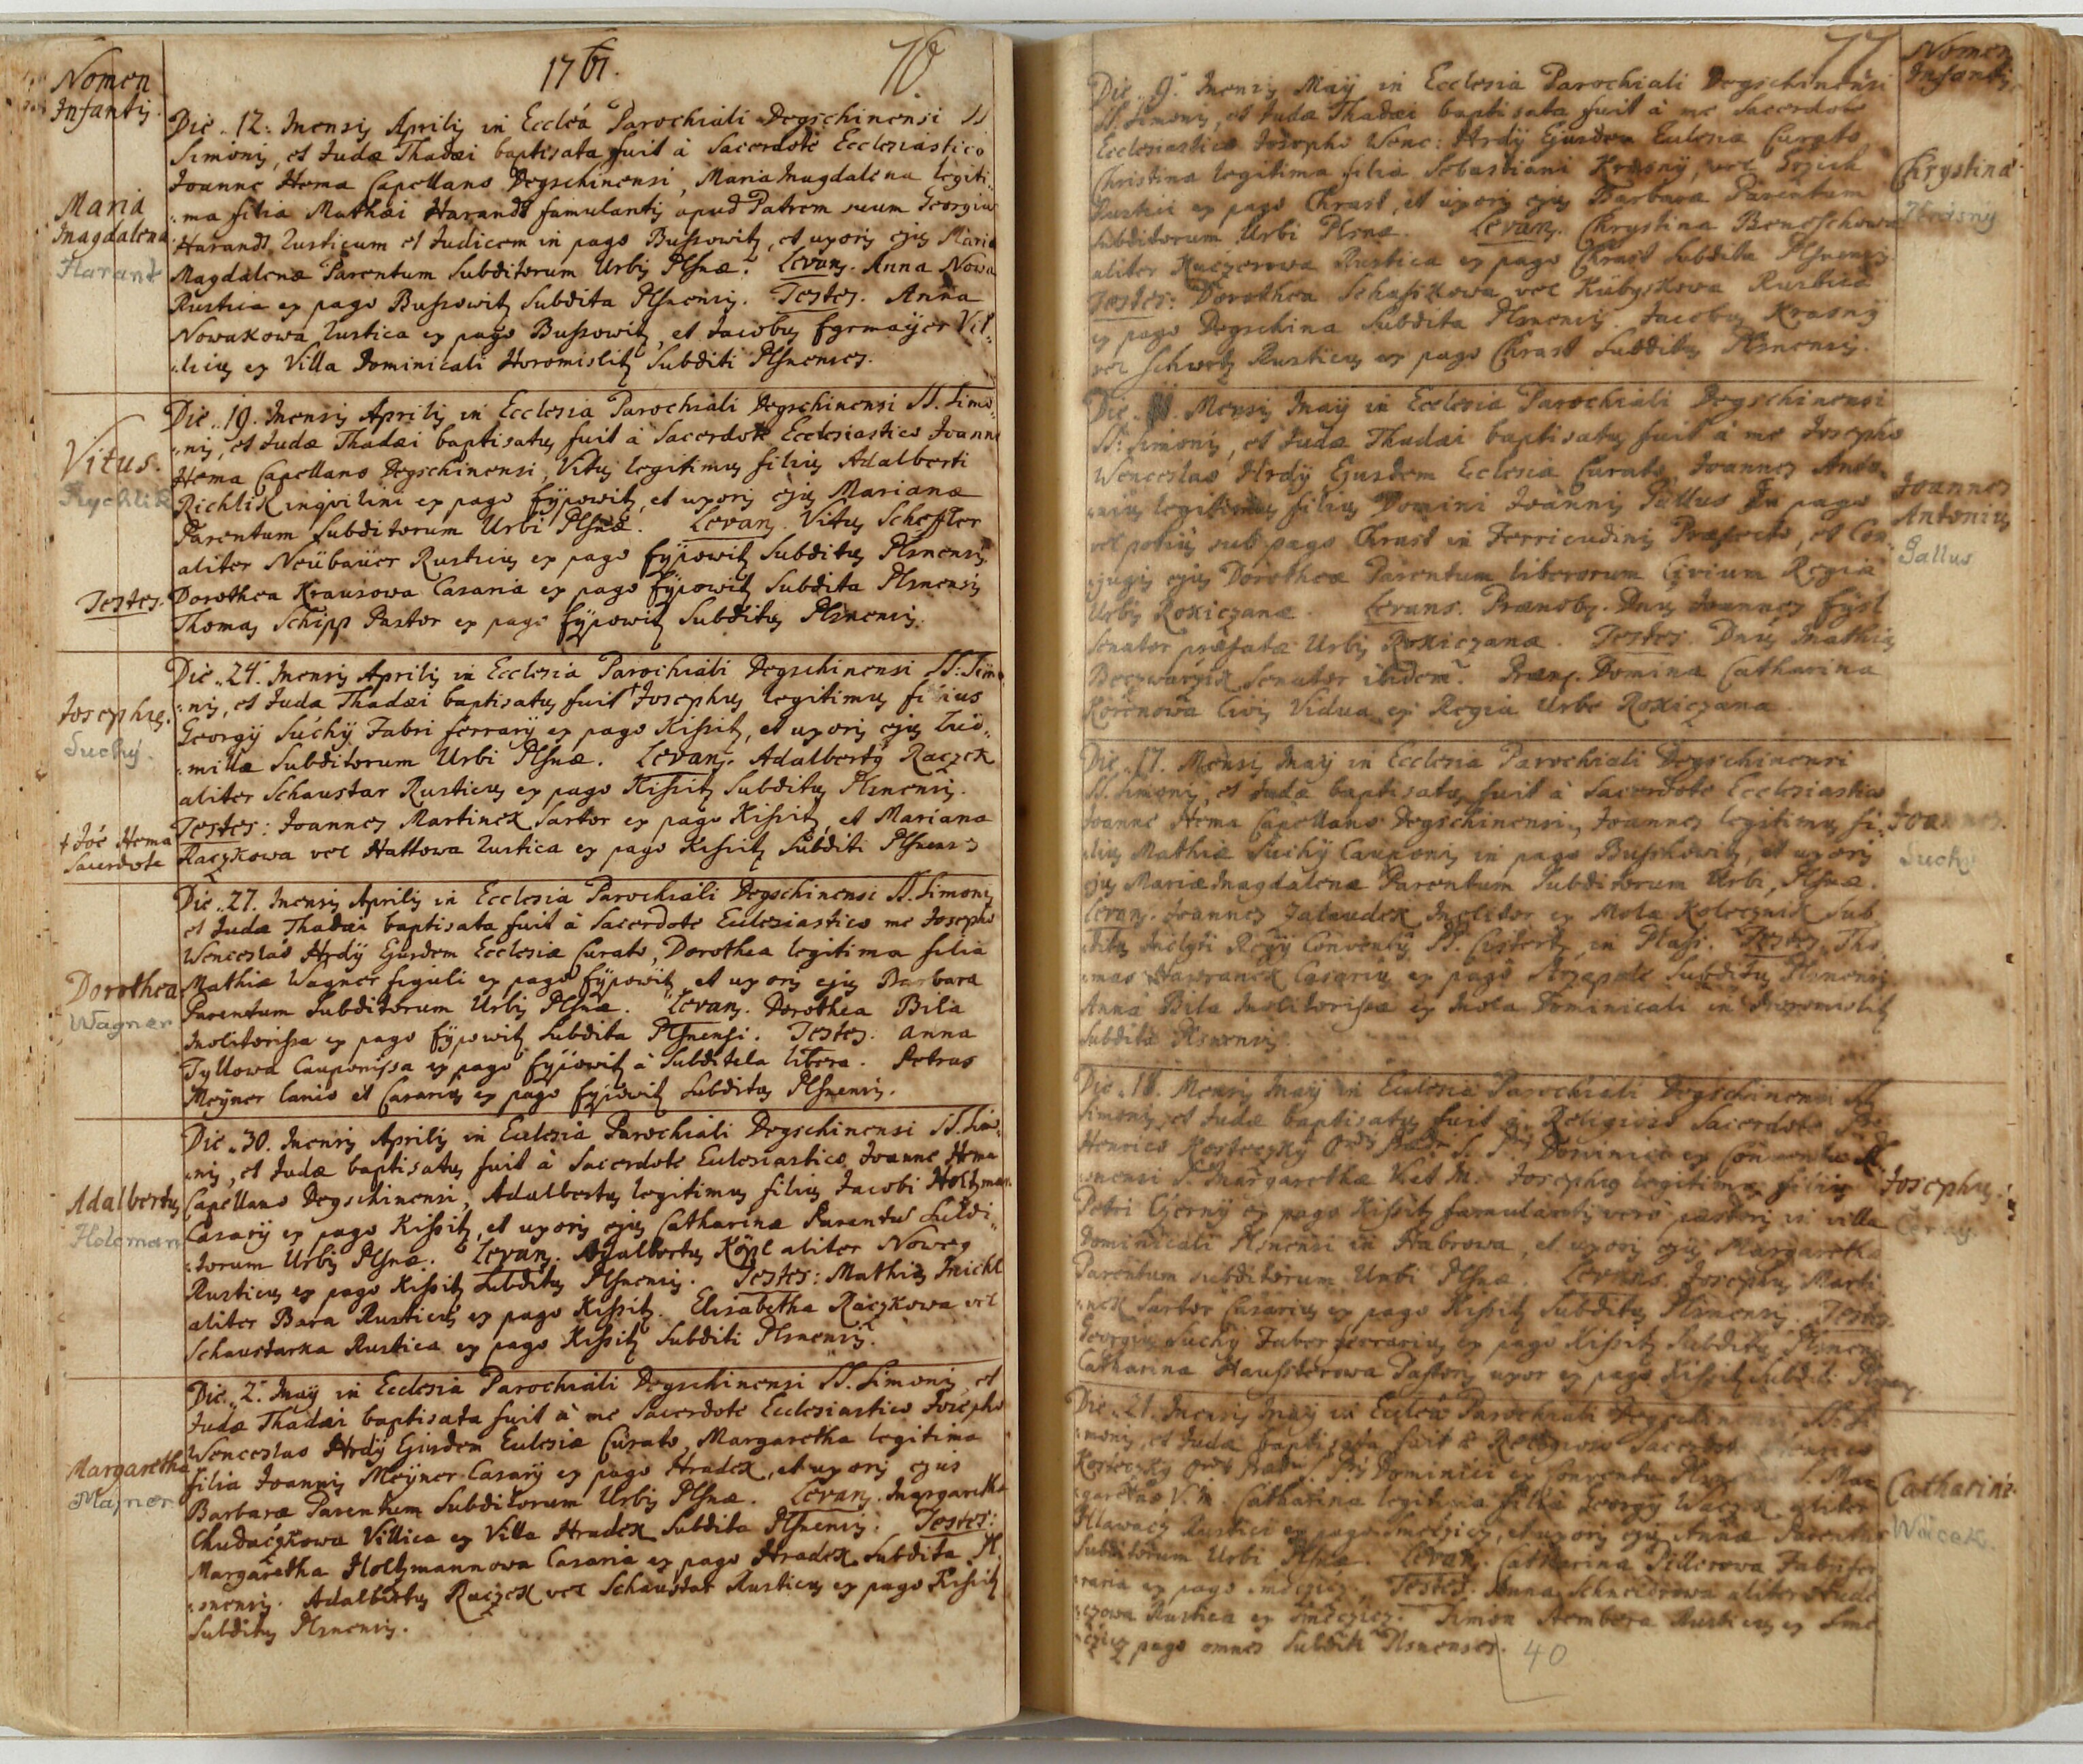 1761.
76.
Nomen
Infantis.
Die .. 12. Mensis Aprilis in Ecclâ Parochiali Degschinensi SS
Simonis, et Judæ Thadæi baptisata fuit à Sacerdote Ecclesiastico
Joanne Hema Capellano Degschinensi, Maria Magdalena legiti-
Maria
Magdalena
Harant
-ma filia Mathæi Harandt famulantis apud Patrem suum Georgium
Harandt Rusticum et Judicem in pago Bussowitz, et uxoris ejus Maria
Magdalenæ Parentum Subditorum Urbis Plsnæ. Levans. Anna Nowa
Rustica ex pago Bussowitz Subdita Plsnensis. Testes. Anna
Nowakowa Rustica ex pago Bussowitz, et Jacobus Egrmaÿer Vil-
-licus ex Villa Dominicali Horomislitz Subditi Plsnenses.
Die .. 19. Mensis Aprilis in Ecclesia Parochiali Degschinensi SS. Simo-
-nis, et Judæ Thadæi baptisatus fuit à Sacerdote Ecclesiastico Joanne
Vitus.
Rychlik
Hema Capellano Degschinensi, Vitus legitimus filius Adalberti
Richlik inqvilini ex pago Eÿpowitz, et uxoris ejus Marianæ
Parentum Subditorum Urbi Plsnæ. Levans. Vitus Scheffler
aliter Neübaüer Rusticus ex pago Eÿpowitz Subditus Plsnensis.
Testes.
Dorothea Krausowa Casaria ex pago Eÿpowitz Subdita Plsnensis
Thomas Schipp Pastor ex pago Eÿpowitz Subditus Plsnensis.
Die .. 24. Mensis Aprilis in Ecclesia Parochiali Degschinensi SS: Simo-
-nis, et Judæ Thadæi baptisatus fuit + Josephus legitimus filius
Josephus.
Suchý.
Georgÿ Suchÿ Fabri ferrarÿ ex pago Kissitz, et uxoris ejus Lüd-
-millæ Subditorum Urbi Plsnæ. Levans. Adalbertus Raczek
aliter Schaustar Rusticus ex pago Kissitz Subditus Plsnensis.
Testes: Joannes Martinek Sartor ex pago Kissitz, et Mariana
+ Joē Hema
Sacerdote
Raczkowa vel Hattowa Rustica ex pago Kissitz Subditi Plsnenses
Die .. 27. Mensis Aprilis in Ecclesia Parochiali Degschinensi SS. Simonis,
et Judæ Thadæi baptisata fuit à Sacerdote Ecclesiastico me Josepho
Wenceslao Hrdÿ Ejusdem Ecclesiæ Curato, Dorothea legitima filia
Dorothea
Wagner
Mathiæ Wagner figuli ex pago Eÿpowitz, et uxoris ejus Barbara
Parentum Subditorum Urbis Plsnæ. Levans. Dorothea Bila
Molitorissa ex pago Eÿpowitz Subdita Plsnensi. Testes. Anna
Tyllowa Cauponissa ex pago Eÿpowitz à Subditela libera. Petrus
Meÿner lanio et Casarius ex pago Eÿpowitz Subditus Plsnensis.
Die .. 30. Mensis Aprilis in Ecclesia Parochiali Degschinensi SS. Simo-
-nis, et Judæ baptisatus fuit à Sacerdote Ecclesiastico Joanne Hema
Adalbertus
Holcman
Capellano Degschinensi, Adalbertus legitimus filius Jacobi Holtzman
Casarÿ ex pago Kissitz, et uxoris ejus Catharinæ Parentum Subdi-
-torum Urbis Plsnæ. Levans. Adalbertus aliter
Rusticus ex pago Kissitz Subditus Plsnensis. Testes: Mathias Michl
aliter Bara Rusticus ex pago Kissitz. Elisabetha Raczkowa vel
Schaustarka Rustica ex pago Kissitz Subditi Plsnensis.
Die .. 2. Maÿ in Ecclesia Parochiali Degschinensi SS. Simonis, et
Judæ Thadæi baptisata fuit à me Sacerdote Ecclesiastico Josepho
Wenceslao Hrdÿ Ejusdem Ecclesiæ Curato, Margaretha legitima
Margaretha
Majner
filia Joannis Meÿner Casarÿ ex pago Hradek, et uxoris ejus
Barbaræ Parentum Subditorum Urbis Plsnæ. Levans. Margaretha
Chudaczkowa Villica ex Villa Hradek Subdita Plsnensis. Testes:
Margaretha Holtzmannowa Casaria ex pago Hradek Subdita Pl-
-snensis. Adalbertus Raczek vel Schaustar Rusticus ex pago Kissitz
Subditus Plsnensis.
77
Nomen
Infantis
Die .. 9. Mensis Maÿ in Ecclesia Parochiali Degschinensi
SS. Simonis, et Judæ Thadæi baptisata fuit à me Sacerdote
Ecclesiastico Josepho Wenc: Hrdÿ Ejusdem Ecclesiæ Curato
Chrystina
Krásný
Christina legitima filia Sebastiani Krasnÿ, vel
Rustici ex pago Chrast, et uxoris ejus Barbaræ Parentum
Subditorum Urbi Plsnæ. Levans. Chrystina Beneschowa
aliter Kuczerowa Rustica ex pago Chrast Subdita Plsnensis
Testes: Dorothea Schafskowa vel Kubyskowa Rustica
ex pago Degschina Subdita Plsnensis. Jacobus Krasnÿ
vel Schwetz Rusticus ex pago Chrast Subditus Plsnensis.
Die .. Mensis Maÿ in Ecclesia Parochiali Degschinensi
SS: Simonis, et Judæ Thadæi baptisatus fuit à me Josepho
Wenceslao Hrdÿ Ejusdem Ecclesiæ Curato, Joannes Anto-
Joannes
Antonius
Gallus
-nius legitimus filius Domini Joannis Gallus in pago
vel potius sub pago Chrast in Ferricudinis Præfecto, et Con-
-jugis ejus Dorotheæ Parentum liberorum Civium Regiæ
Urbis Rokiczanæ. Levans. Prænob. Dnus Joannes Eÿsl
Senator præfatæ Urbis Rokiczanæ. Testes. Dnus Mathias
Senator ibidem. Præn. Domina Catharina
Korenowa Civis Vidua ex Regia Urbe Rokiczana
Die .. 17. Mensis Maÿ in Ecclesia Parochiali Degschinensi
SS. Simonis, et Judæ baptisatus fuit à Sacerdote Ecclesiastico
Joannes.
Suchý
Joanne Hema Capellano Degschinensi, Joannes legitimus fi-
-lius Mathiæ Suchÿ Cauponis in pago Busskowitz, et uxoris
ejus Mariæ Magdalenæ Parentum Subditorum Urbi, Plsnæ.
Levans. Joannes Molitor ex Mola Kolecznik Sub-
-ditus Inclyti Regÿ Conventus Cisterc. in Plass. Testes. Tho-
-mas Hawranek Casarius ex pago Subditus Plsnensis
Anna Bila Molitorissa ex Mola Dominicali in Horomislitz
Subdita Plsnensis.
Die .. 18. Mensis Maÿ in Ecclesia Parochiali Degschinensi SS
Simonis, et Judæ baptisatus fuit à Religioso Sacerdote
Henrico Kosteczkÿ Dominici ex Conventu Pl-
Josephus.
Černý.
-snensi S. Margarethæ V. et M. Josephus legitimus filius
Petri Czernÿ ex pago Kissitz famulantis vero pastoris in villa
Dominicali Plsnensi in Habrowa, et uxoris ejus Margaretha
Parentum subditorum Urbi Plsnæ. Levans. Josephus Marti-
-nek Sartor Casarius ex pago Kissitz Subditus Plsnensis. Testes.
Georgius Suchÿ Faber ferrarius ex pago Kissitz Subditus Plsnens.
Catharina Haussterowa Pastoris uxor ex pago Kissitz Subditi Plsnens.
Die .. 21. Mensis Maÿ in Ecclesia Parochiali Degschinensi SS. Si-
-monis, et Judæ baptisata fuit à Religioso Sacerdote Henrico
Kosteczkÿ Dominici ex Conventu S. Mar-
Catharina.
Wáček.
-garethæ V. M. Catharina legitima filia Georgÿ Waczek aliter
Hlawacz Rustici ex pago Smedczicz, et uxoris ejus Annæ Parentum
Subditorum Urbi Plsnæ. Levans. Catharina Pillerowa Fabrifer-
-raria ex pago Smedczicz. Testes. Anna Schneidrowa aliter
-czowa Rustica ex Smedczicz. Simon Hembera Rusticus ex Sme-
-czicz pago omnes Subditi Plsnenses.
40